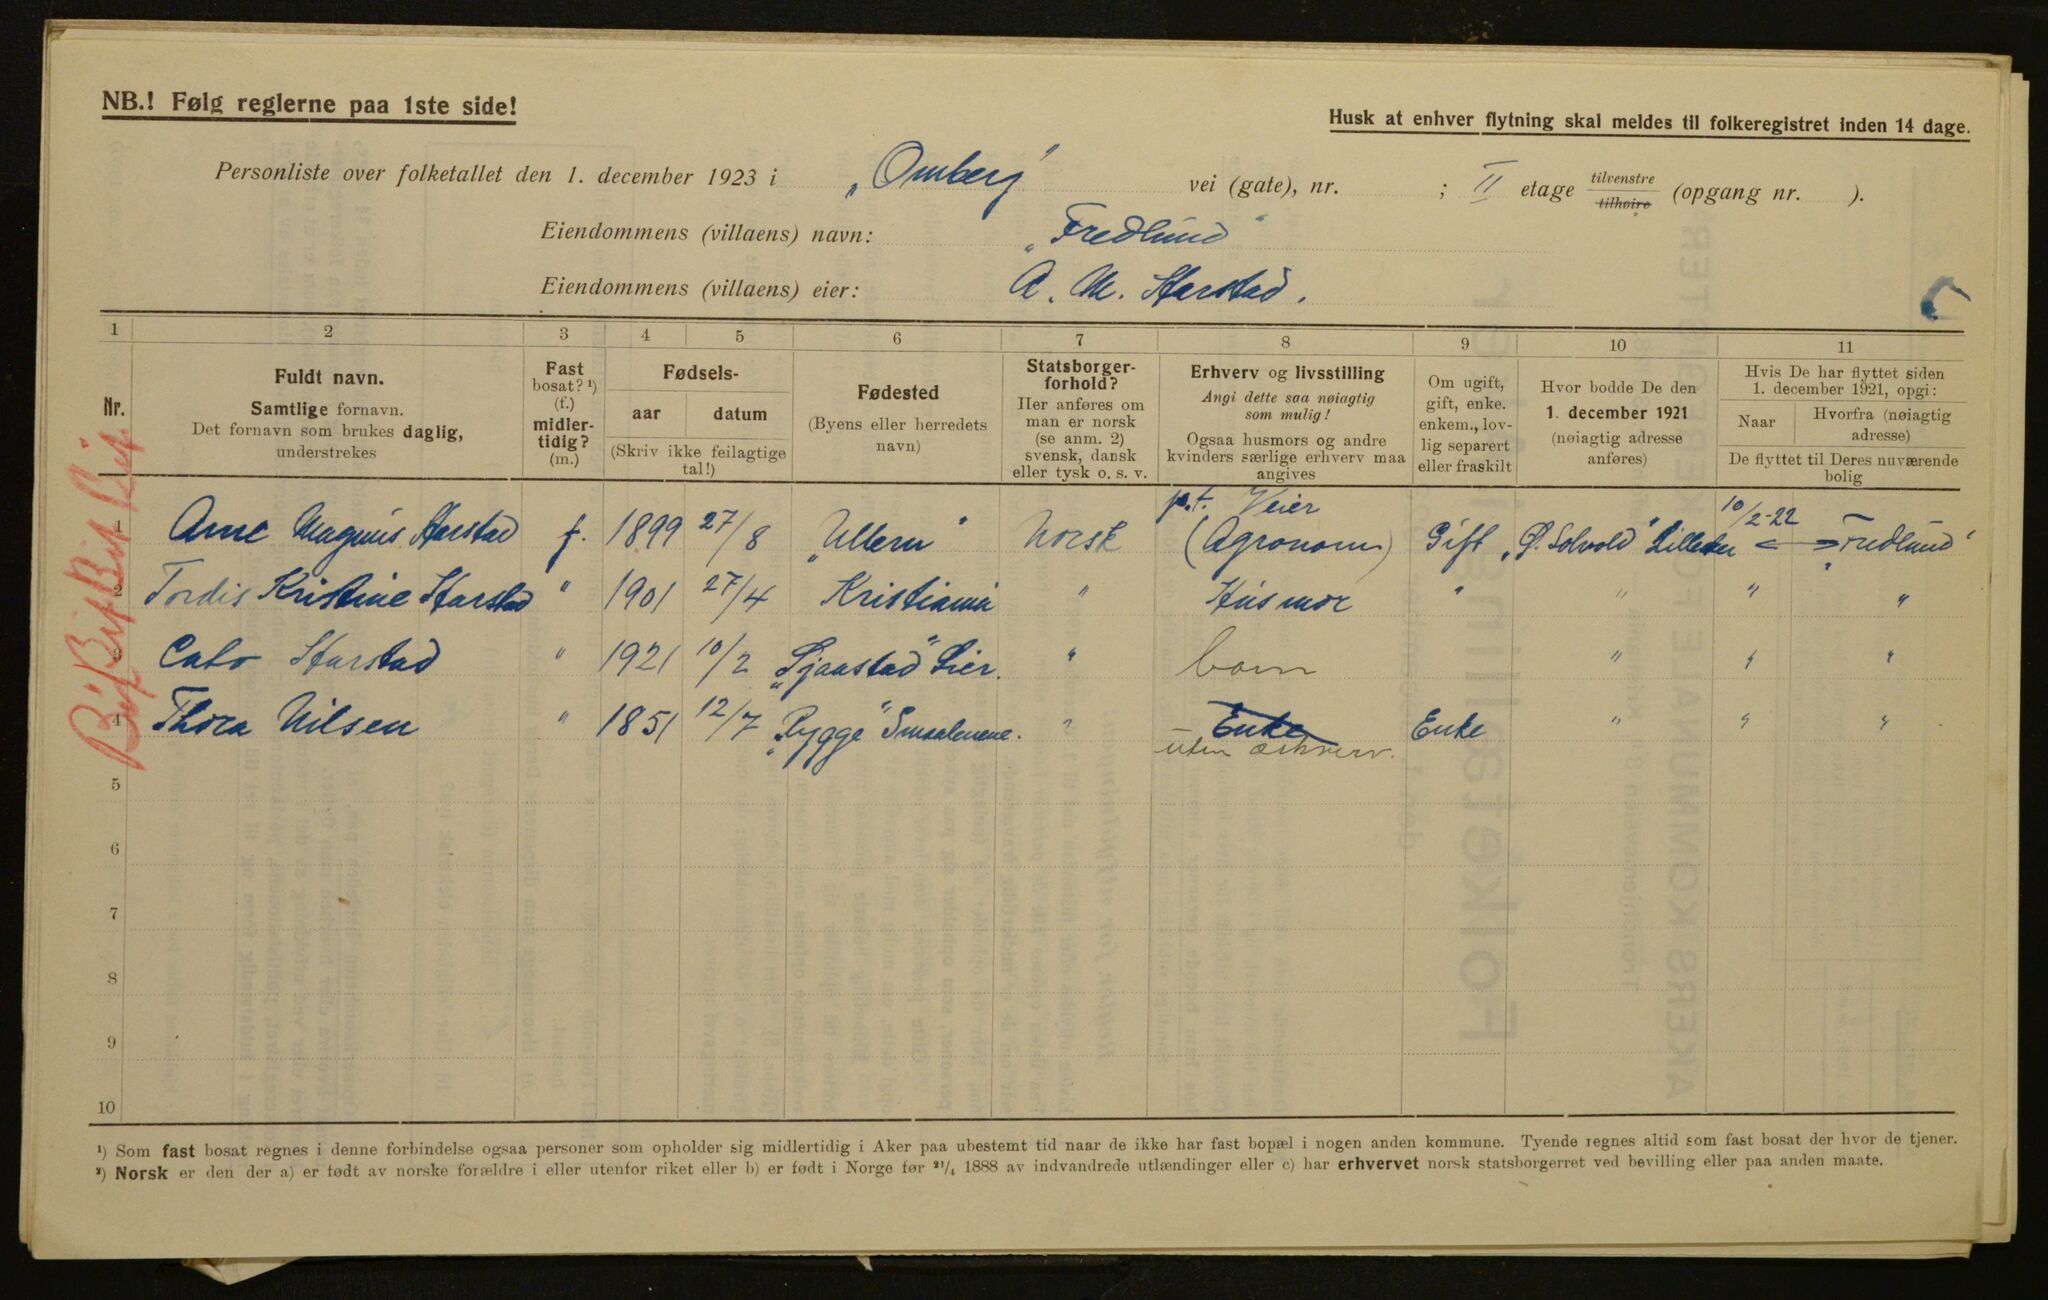 NB.! Følg reglerne paa 1ste side!
Husk at enhver flytning skal meldes til folkeregistret inden 14 dage.
Personliste over folketallet den 1. december 1923 i „Omberg" vei (gate), nr. ; II etage tilvenstre tilhøire (opgang nr. ).
Eiendommens (villaens) navn: „Fredlund"
Eiendommens (villaens) eier: A. M. Harstad.
1 2 3 4 5 6 7 8 9 10 11
Nr.
Fuldt navn.
Samtlige fornavn.
Det fornavn som brukes daglig,
understrekes
Fast
bosat? ¹)
(f.)
midler-
tidig?
(m.)
Fødsels-
aar datum
(Skriv ikke feilagtige
tal!)
Fødested
(Byens eller herredets
navn)
Statsborger-
forhold?
Her anføres om
man er norsk
(se anm. 2)
svensk, dansk
eller tysk o. s. v.
Erhverv og livsstilling
Angi dette saa nøiagtig
som mulig!
Ogsaa husmors og andre
kvinders særlige erhverv maa
angives
Om ugift,
gift, enke.
enkem., lov-
lig separert
eller fraskilt
Hvor bodde De den
1. december 1921
(nøiagtig adresse
anføres)
Hvis De har flyttet siden
1. december 1921, opgi:
Naar Hvorfra (nøiagtig
adresse)
De flyttet til Deres nuværende
bolig
1 Arne Magnus Harstad f. 1899 27/8 „Ullern" Norsk p.t. Veier (Agronom) Gift 10/2-22 „Fredlund"
2 Tordis Kristine Harstad " 1901 27/4 Kristiania " Husmor " " " "
3 Cato Harstad " 1921 10/2 „Sjaastad" Lier. " barn " " "
4 Thora Nilsen " 1851 12/7 „Rygge" Smaalenene. " Enke Enke " " "
uten erhverv.
5
6
7
8
9
10
¹) Som fast bosat regnes i denne forbindelse ogsaa personer som opholder sig midlertidig i Aker paa ubestemt tid naar de ikke har fast bopæl i nogen anden kommune. Tyende regnes altid som fast bosat der hvor de tjener.
²) Norsk er den der a) er født av norske forældre i eller utenfor riket eller b) er født i Norge før ²¹/₄ 1888 av indvandrede utlændinger eller c) har erhvervet norsk statsborgerret ved bevilling eller paa anden maate.